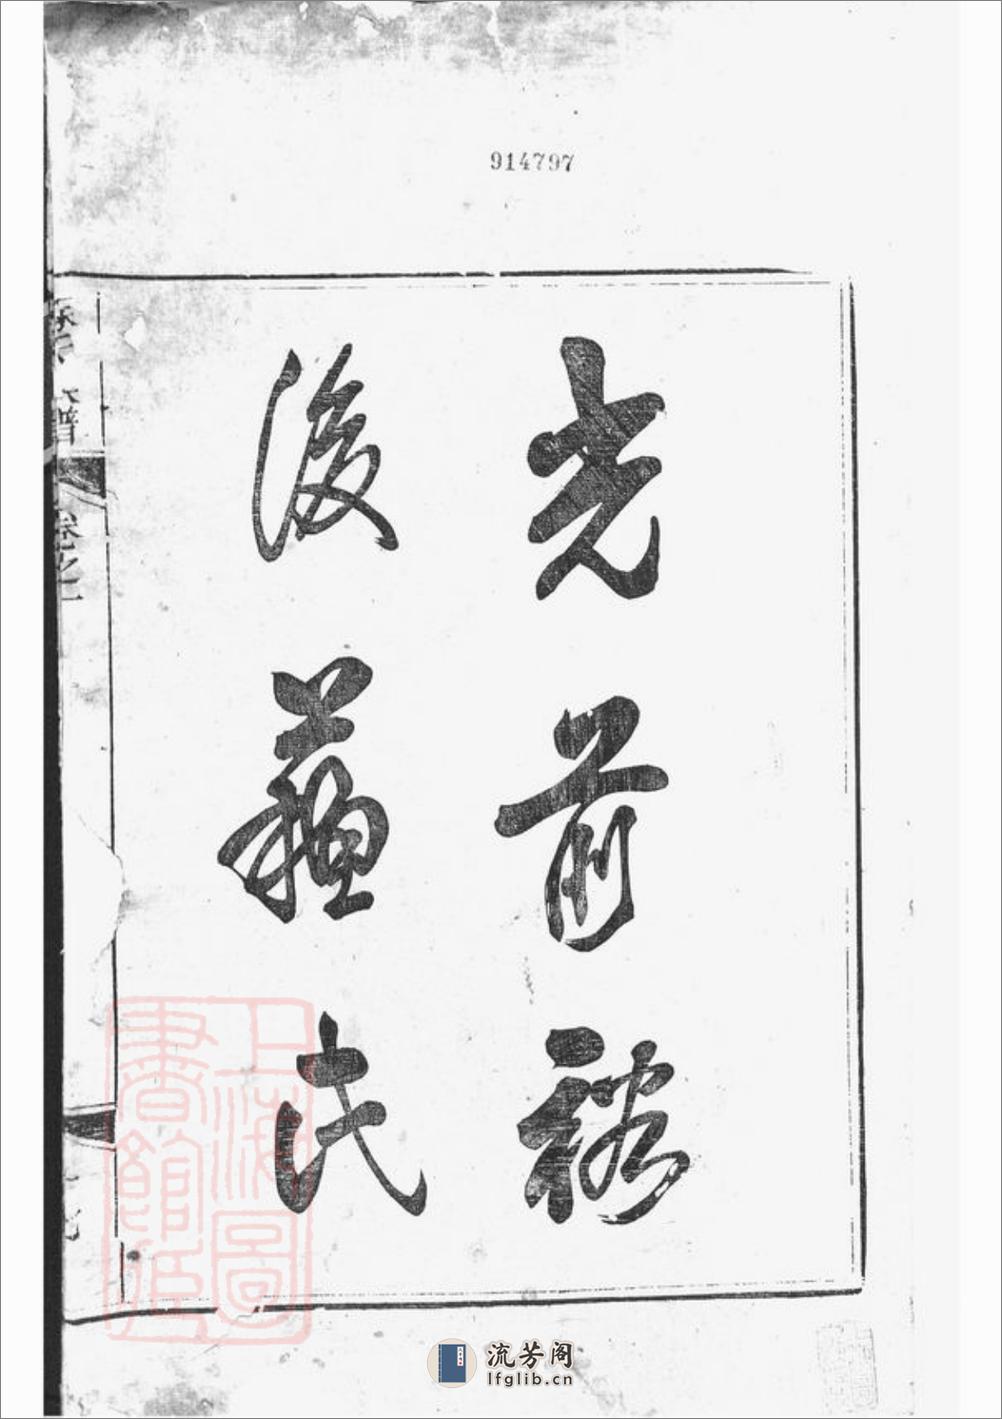 914797
光前裕
後蘓氏
譜
卷之一
上海圖
書館藏
流芳阁
lfglib.cn